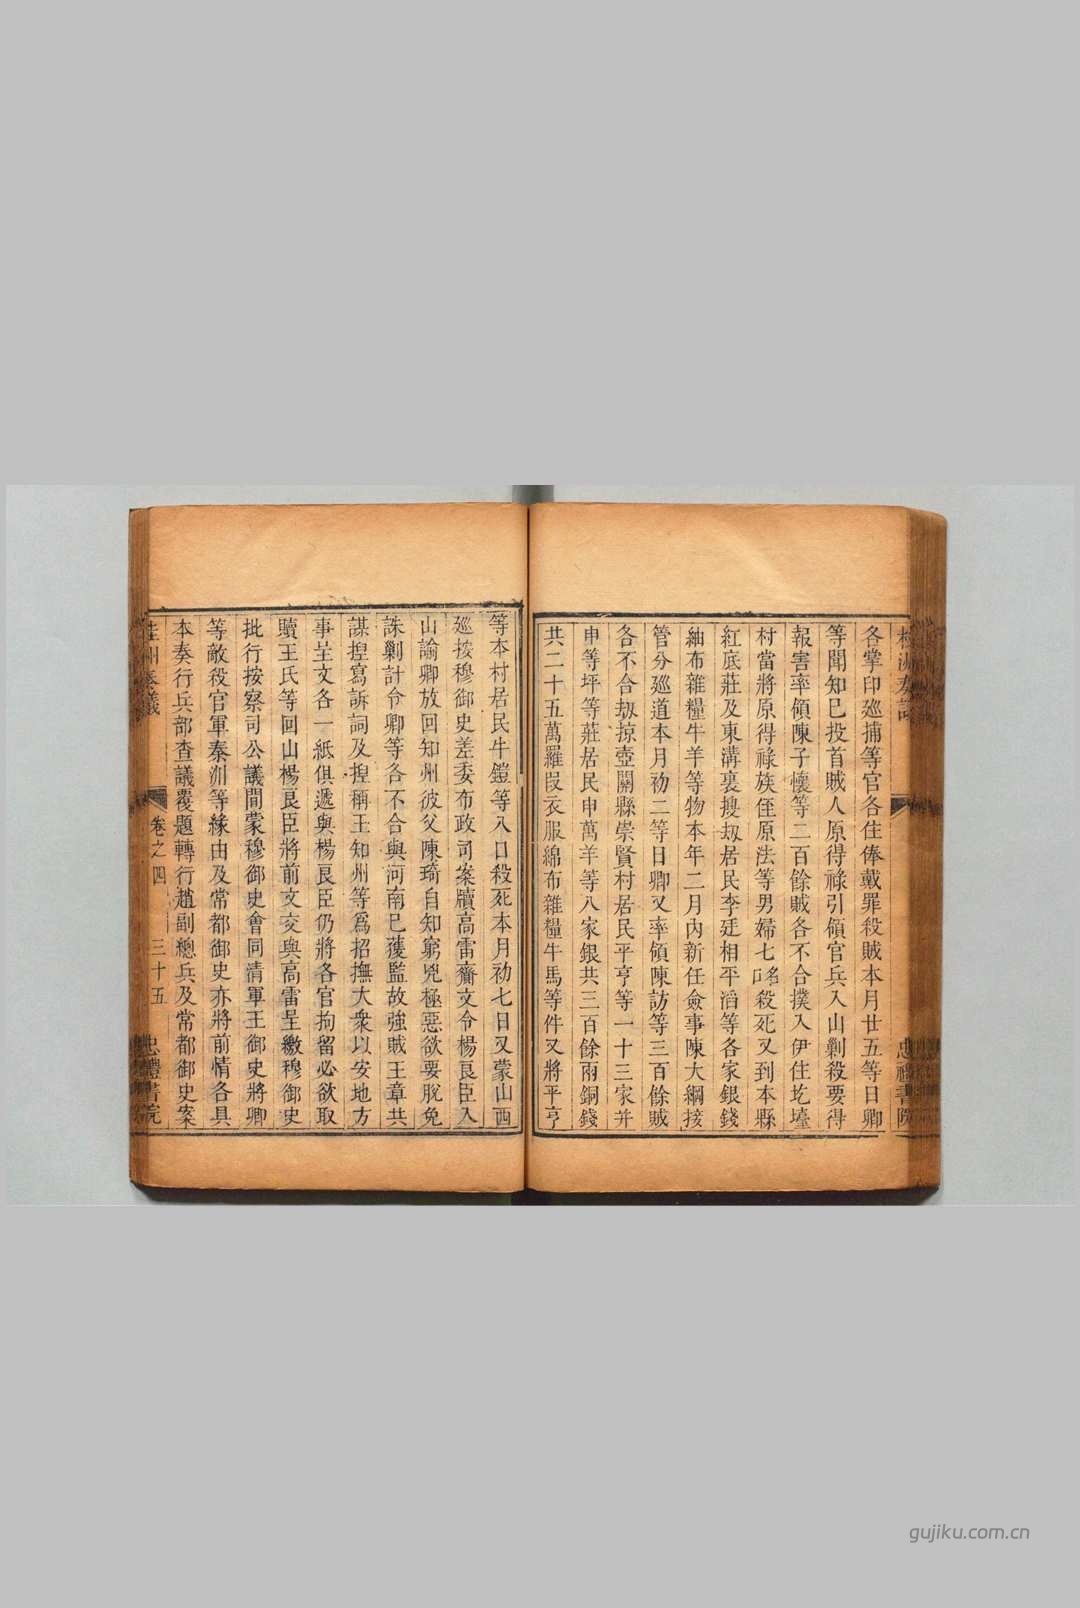 各掌印廵捕等官各住俸戴罪殺賊本月廿五等日卿
等聞知巳投首賊人原得祿引領官兵入山剿殺要得
報害率領陳子懷等二百餘賊各不合撲入伊住圪壜
村當將原得祿族侄原法等男婦七口名殺死又到本縣
紅底莊及東溝裏搜刼居民李廷相平滔等各家銀錢
紬布雜糧牛羊等物本年二月内新任僉事陳大綱接
管分廵道本月初二等日卿又率領陳訪等三百餘賊
各不合刼掠壺關縣崇賢村居民平亨等一十三家并
申等坪等莊居民申萬羊等八家銀共三百餘兩銅錢
共二十五萬羅段衣服綿布雜糧牛馬等件又將平亨
等本村居民牛鎧等入口殺死本月初七日又蒙山西
廵按穆御史差委布政司案牘高雷齎文令楊良臣入
山諭卿放回知州彼父陳琦自知窮兇極惡欲要脫免
誅剿計令卿等各不合與河南巳獲監故強賊王章共
謀揑寫訴詞及揑稱王知州等爲招撫大衆以安地方
事呈文各一紙俱遞與楊良臣仍將各官拘留必欲取
贖王氏等回山楊良臣將前文交與高雷呈繳穆御史
批行按察司公議間蒙穆御史會同清軍王御史將卿
等敵殺官軍秦洲等緣由及常都御史亦將前情各具
本奏行兵部查議覆題轉行趙副總兵及常都御史案
桂洲奏議
卷之四
三十五
忠禮書院
gujiku.com.cn